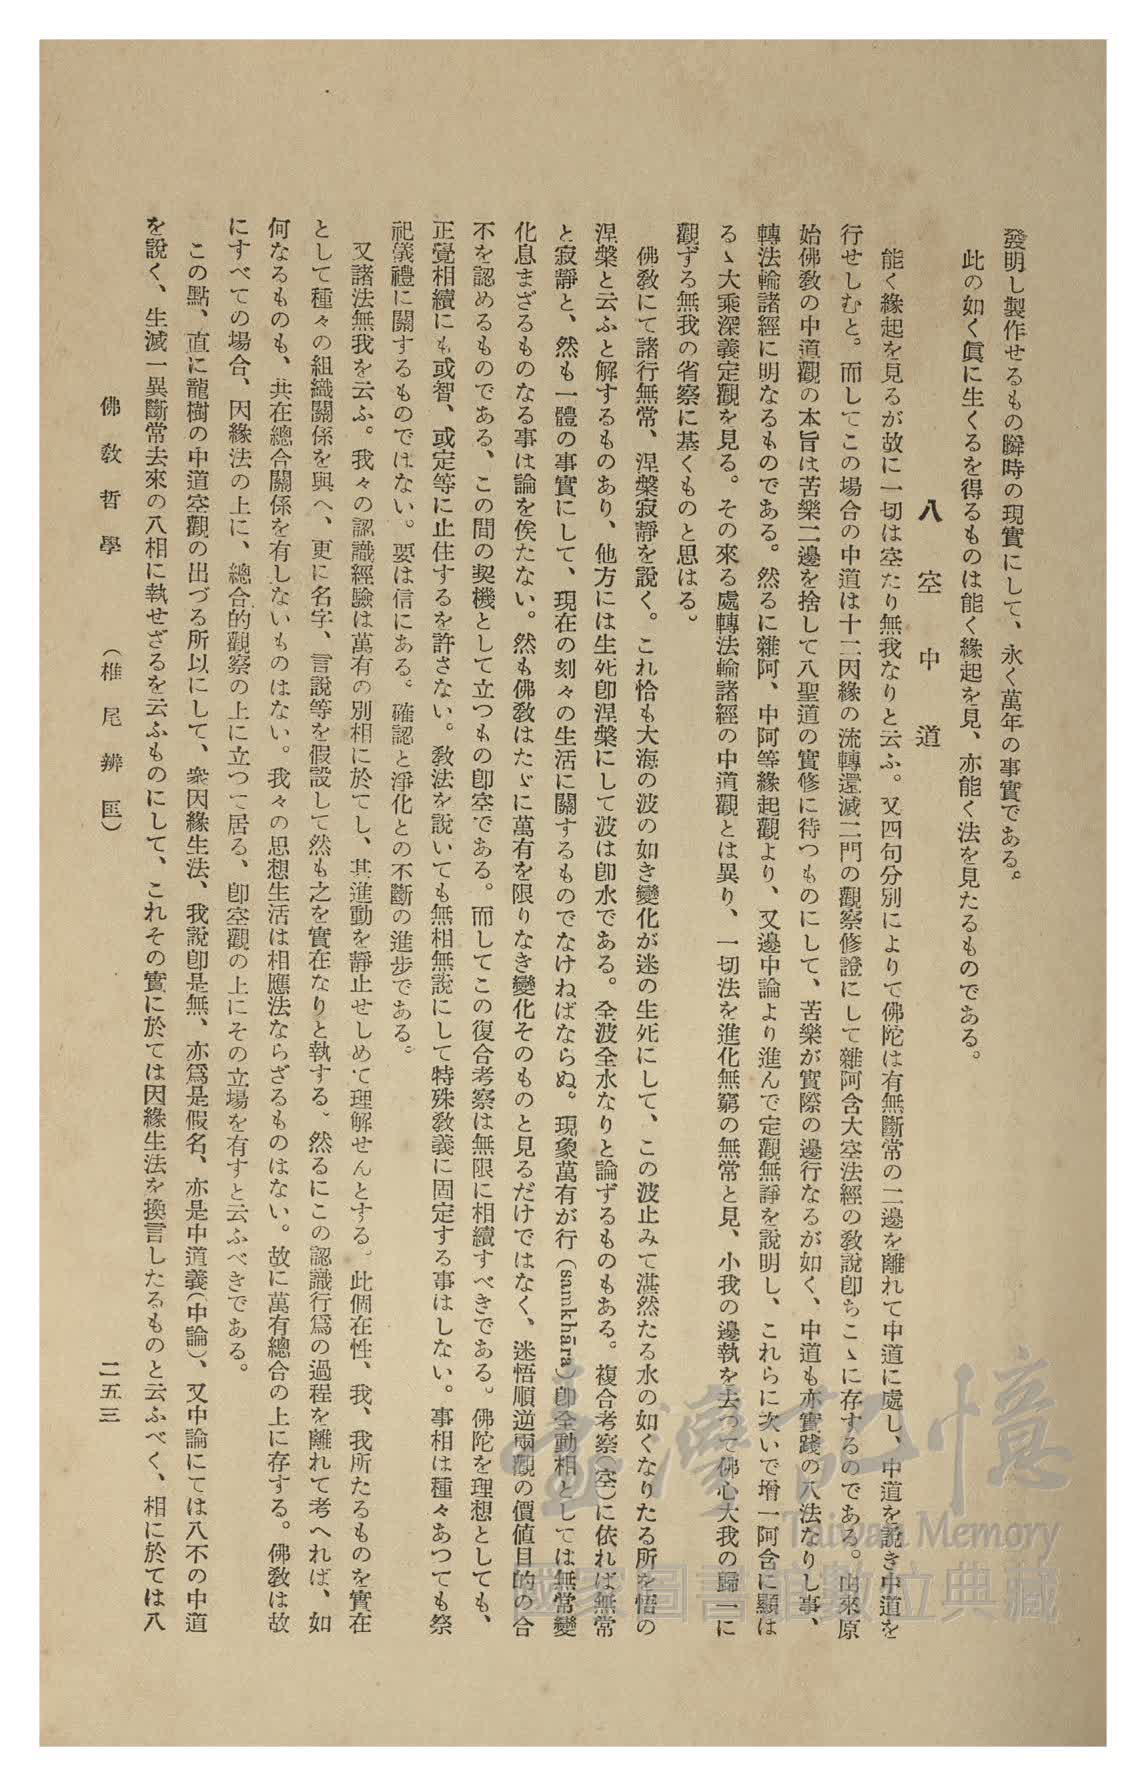 發明し製作せるもの瞬時の現實にして、永く萬年の事實である。
此の如く眞に生くるを得るものは能く緣起を見、亦能く法を見たるものである。
八 空中道
能く緣起を見るが故に一切は空たり無我なりと云ふ。又四句分別によりて佛陀は有無斷常の二邊を離れて中道に處し、中道を說き中道を
行せしむと。而してこの場合の中道は十二因緣の流轉還滅二門の觀察修證にして雜阿含大空法經の敎說卽ちこゝに存するのである。由來原
始佛敎の中道觀の本旨は苦樂二邊を捨して八聖道の實修に待つものにして、苦樂が實際の邊行なるが如く、中道も亦實踐の八法なりし事、
轉法輪諸經に明なるものである。然るに雜阿、中阿等緣起觀より、又邊中論より進んで定觀無諍を說明し、これらに次いで增一阿含に顯は
るゝ大乘深義定觀を見る。その來る處轉法輪諸經の中道觀とは異り、一切法を進化無窮の無常と見、小我の邊執を去つて佛心大我の歸一に
觀ずる無我の省察に基くものと思はる。
佛敎にて諸行無常、涅槃寂靜を說く。これ恰も大海の波の如き變化が迷の生死にして、この波止みて湛然たる水の如くなりたる所を悟の
涅槃と云ふと解するものあり、他方には生死卽涅槃にして波は卽水である。全波全水なりと論ずるものもある。複合考察(空)に依れば無常
と寂靜と、然も一體の事實にして、現在の刻々の生活に關するものでなければならぬ。現象萬有が行(saṃkhāra)卽全動相としては無常變
化息まざるものなる事は論を俟たない。然も佛敎はたゞに萬有を限りなき變化そのものと見るだけではなく、迷悟順逆兩觀の價値目的の合
不を認めるものである、この間の契機として立つもの卽空である。而してこの復合考察は無限に相續すべきである。佛陀を理想としても、
正覺相續にも或智、或定等に止住するを許さない。敎法を說いても無相無說にして特殊敎義に固定する事はしない。事相は種々あつても祭
祀儀禮に關するものではない。要は信にある。確認と淨化との不斷の進步である。
又諸法無我を云ふ。我々の認識經驗は萬有の別相に於てし、其進動を靜止せしめて理解せんとする。此個在性、我、我所たるものを實在
として種々の組織關係を與へ、更に名字、言說等を假設して然も之を實在なりと執する。然るにこの認識行爲の過程を離れて考へれば、如
何なるものも、共在總合關係を有しないものはない。我々の思想生活は相應法ならざるものはない。故に萬有總合の上に存する。佛敎は故
にすべての場合、因緣法の上に、總合的觀察の上に立つて居る、卽空觀の上にその立場を有すと云ふべきである。
この點、直に龍樹の中道空觀の出づる所以にして、衆因緣生法、我說卽是無、亦爲是假名、亦是中道義(中論)、又中論にては八不の中道
を說く、生滅一異斷常去來の八相に執せざるを云ふものにして、これその實に於ては因緣生法を換言したるものと云ふべく、相に於ては八
佛敎哲學 (椎尾辨匡) 二五三
臺灣記憶
Taiwan Memory
國家圖書館數位典藏